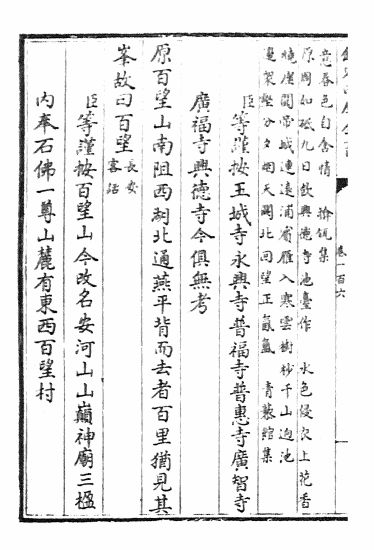 卷一百六
意春色自含情 瑜伽集
原周如砥九日飲興德寺池臺作 水色侵衣上花香
繞
關帝城連遠浦賓雁入寒雲樹杪千山迥池
邊 分夕烟天闕北回望正氤氳 青藜館集
臣等謹按玉城寺永興寺普福寺普惠寺廣智寺
廣福寺興德寺今俱無考
原百望山南阻西湖北通燕平背而去者百里猶見其
峯故曰百望 長安客話
臣等謹按百望山今改名安河山山巔神廟三楹
內奉石佛一尊山麓有東西百望村